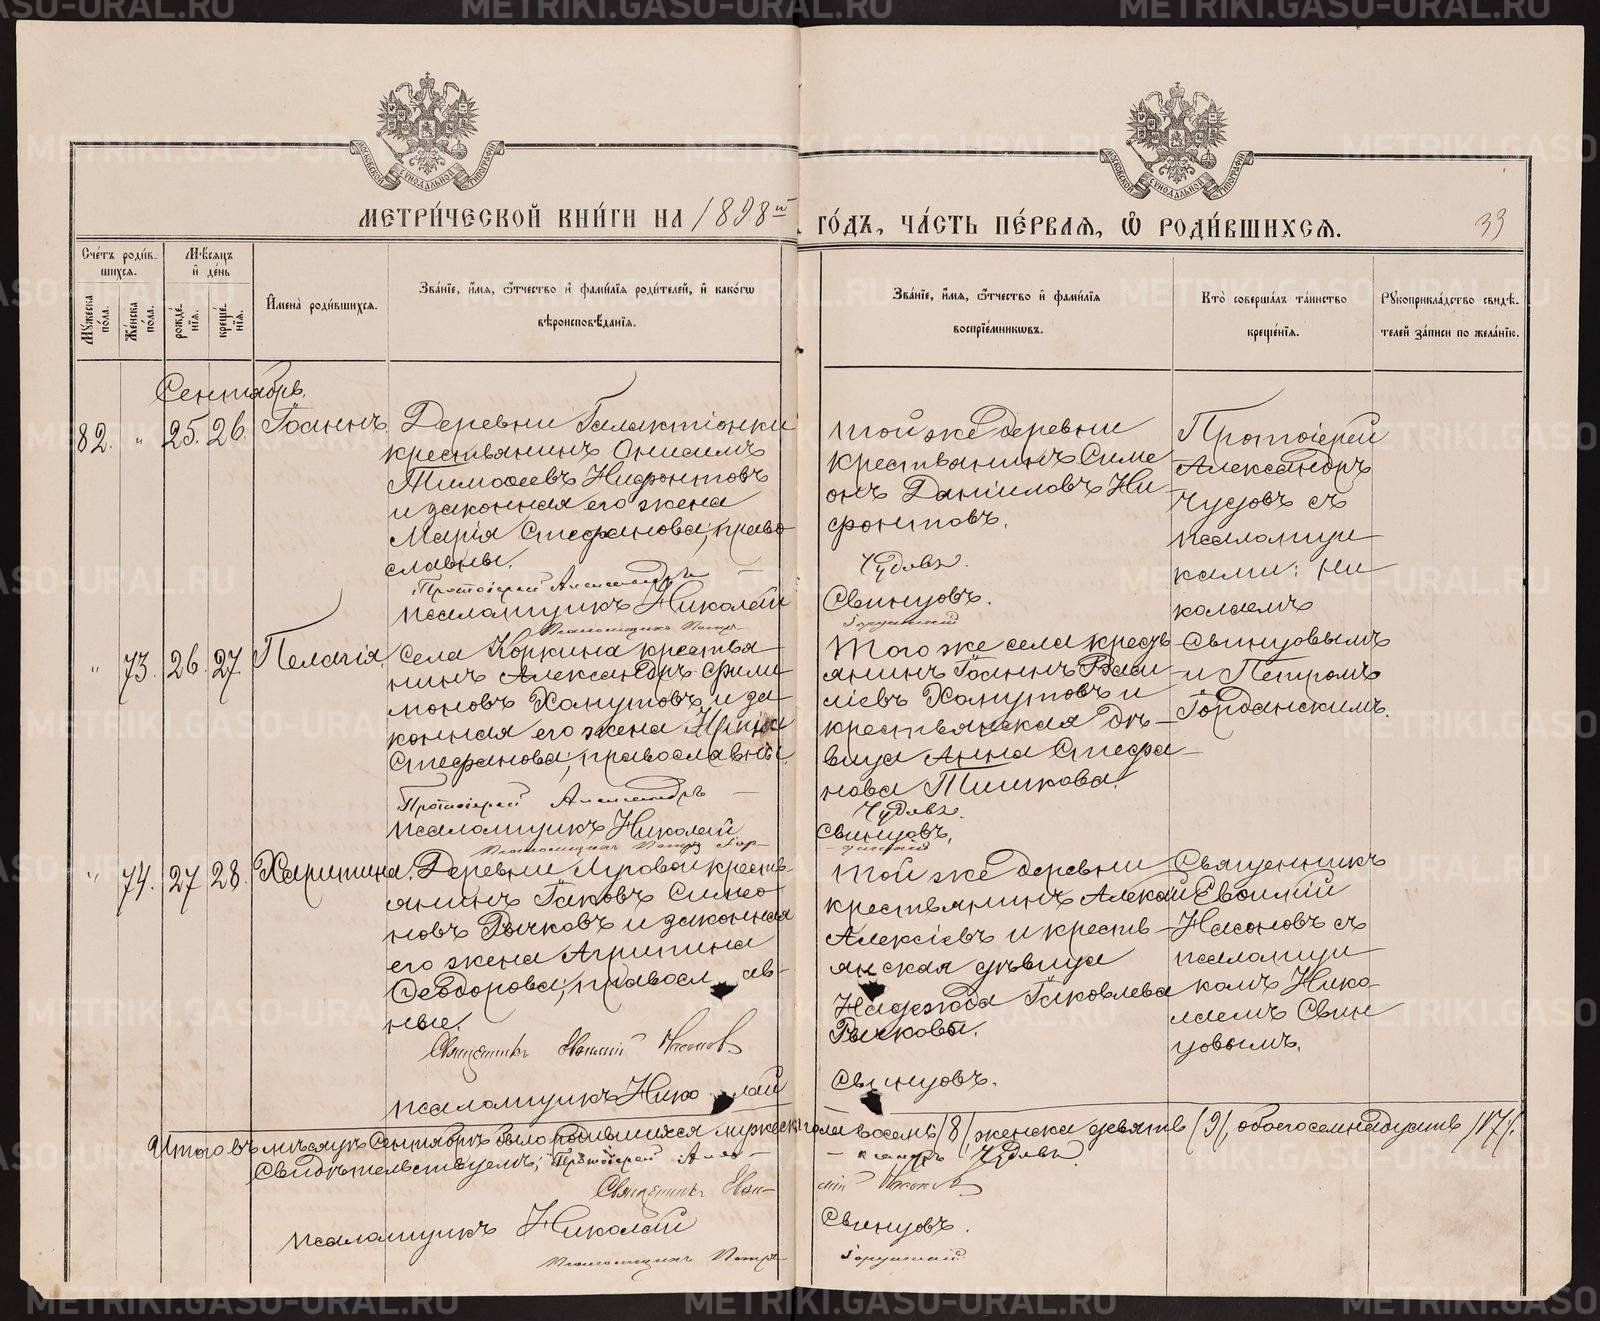 МЕТРИ́ЧЕСКОЙ КНИ́ГИ НА 1898й ГО́ДЪ, ЧА́СТЬ ПЕ́РВАЯ, Ѽ РОДИ́ВШИХСЯ.
39
МОСКОВСКОЙ СУНОДАЛЬНОЙ ТИПОГРАФІИ
МОСКОВСКОЙ СУНОДАЛЬНОЙ ТИПОГРАФІИ
Сче́тъ роди́в-
шихся.
Му́жеска по́ла.
Же́нска по́ла.
Мѣ́сяцъ
и҆ де́нь
рожде́-
нїя.
креще́-
нїя.
И҆мена̀ роди́вшихся.
Зва́нїе, и҆́мя, ѻ҆́тчество и҆ фами́лїя роди́телей, и҆ како́гѡ
вѣроисповѣ́данїя.
Зва́нїе, и҆́мя, ѻ҆́тчество и҆ фами́лїя
воспрїе́мникѡвъ.
Кто̀ соверша́лъ та́инство
креще́нїя.
Рꙋкоприкла́дство свидѣ́-
телей за́писи по жела́нїю.
Сентябрь.
82. " 25. 26. Іоаннъ.
Деревни Галактіонки
крестьянинъ Онисимъ
Тимоѳеевъ Нифонтовъ
и законная его жена
Марія Стефанова, право-
славны.
Протоіерей Александръ
псаломщикъ Николай
Псаломщикъ Петръ
Той же деревни
крестьянинъ Симе-
онъ Даніиловъ Ни-
фонтовъ.
Чудовъ.
Свинцовъ.
Іорданскій
Протоіерей
Александръ
Чудовъ съ
псаломщи-
ками: Ни-
колаемъ
Свинцовымъ
и Петромъ
Іорданскимъ.
" 73. 26. 27 Пелагія.
Села Коркина крестья-
нинъ Александръ Фили-
моновъ Хомутовъ и за-
конная его жена Ирина
Стефанова, православны.
Протоіерей Александръ
псаломщикъ Николай
Псаломщикъ Петръ Іор-
Того же села кресть-
янинъ Іоаннъ Васи-
ліевъ Хомутовъ и
крестьянская дѣ-
вица Анна Стефа-
нова Тишкова.
Чудовъ.
Свинцовъ.
-данскій
" 74. 27 28. Харитина.
Деревни Луговой кресть-
янинъ Іаковъ Симео-
новъ Рычковъ и законная
его жена Агрипина
Ѳеодорова, правосл ав-
ные.
Священникъ Евѳимій Насонов
псаломщикъ Нико лай
Той же деревни
крестьянинъ Алексій
Алексіевъ и кресть-
янская дѣвица
Надежда Іаковлева
Рычковы.
Свинцовъ.
Священникъ
Евѳимій
Насоновъ съ
псаломщи-
комъ Нико-
лаемъ Свин-
цовымъ.
Итого въ мѣсяцѣ Сентябрѣ было родившихся мужеска пола восемь /8/, женска девять /9/, обоего семнадцать /17/.
Свидѣтельствуемъ: Протоіерей Алек-
-сандръ Чудовъ
Священникъ Евѳи-
мій Насонов
псаломщикъ Николай
Свинцовъ.
Псаломщикъ Петръ
Іорданскій
METRIKI.GASO-URAL.RU